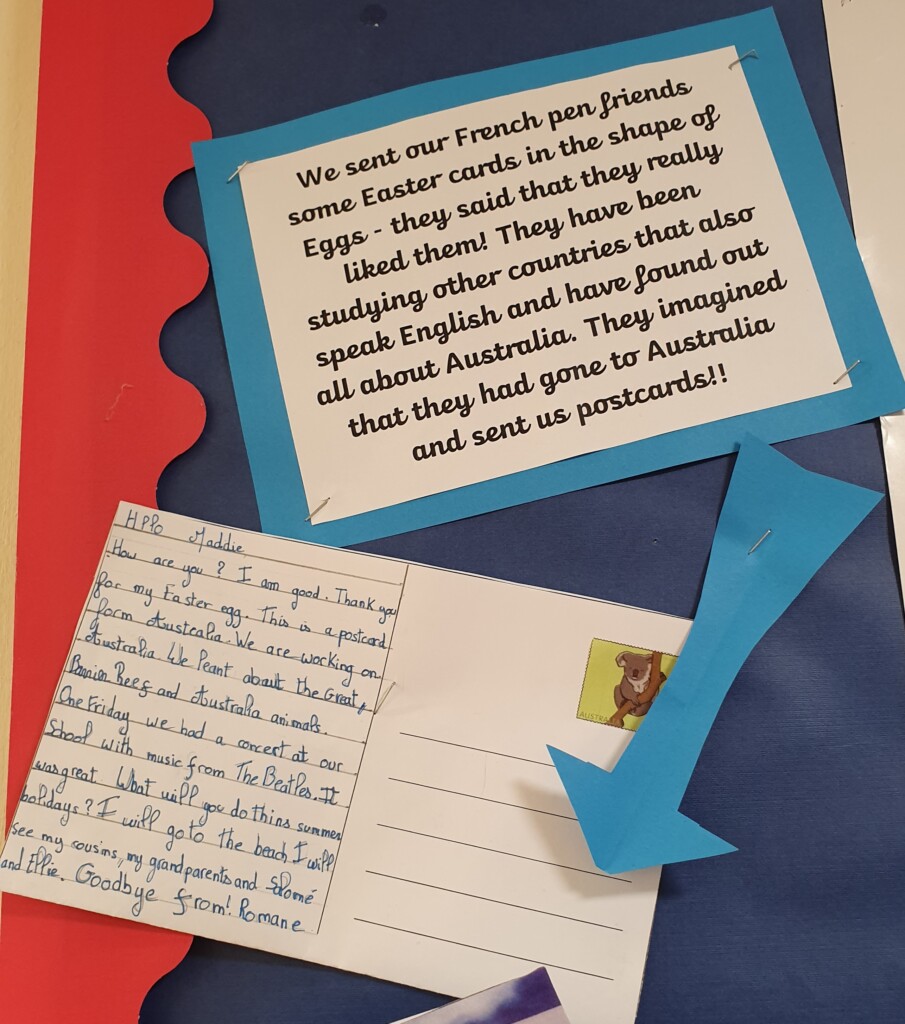 We sent our French pen friends
some Easter cards in the shape of
Eggs - they said that they really
liked them! They have been
studying other countries that also
speak English and have found out
all about Australia. They imagined
that they had gone to Australia
and sent us postcards!!
Hello Maddie
How are you? I am good. Thank you
for my Easter egg. This is a postcard
form Australia. We are working on
Australia. We leant about the Great
Barrier Reef and Australia animals.
One Friday we had a concert at our
School with music from The Beatles. It
was great. What will you do thins summer
holidays? I will go to the beach I will
see my cousins, my grandparents and Salomé
and Ellie. Goodbye from! Romane
AUSTRA